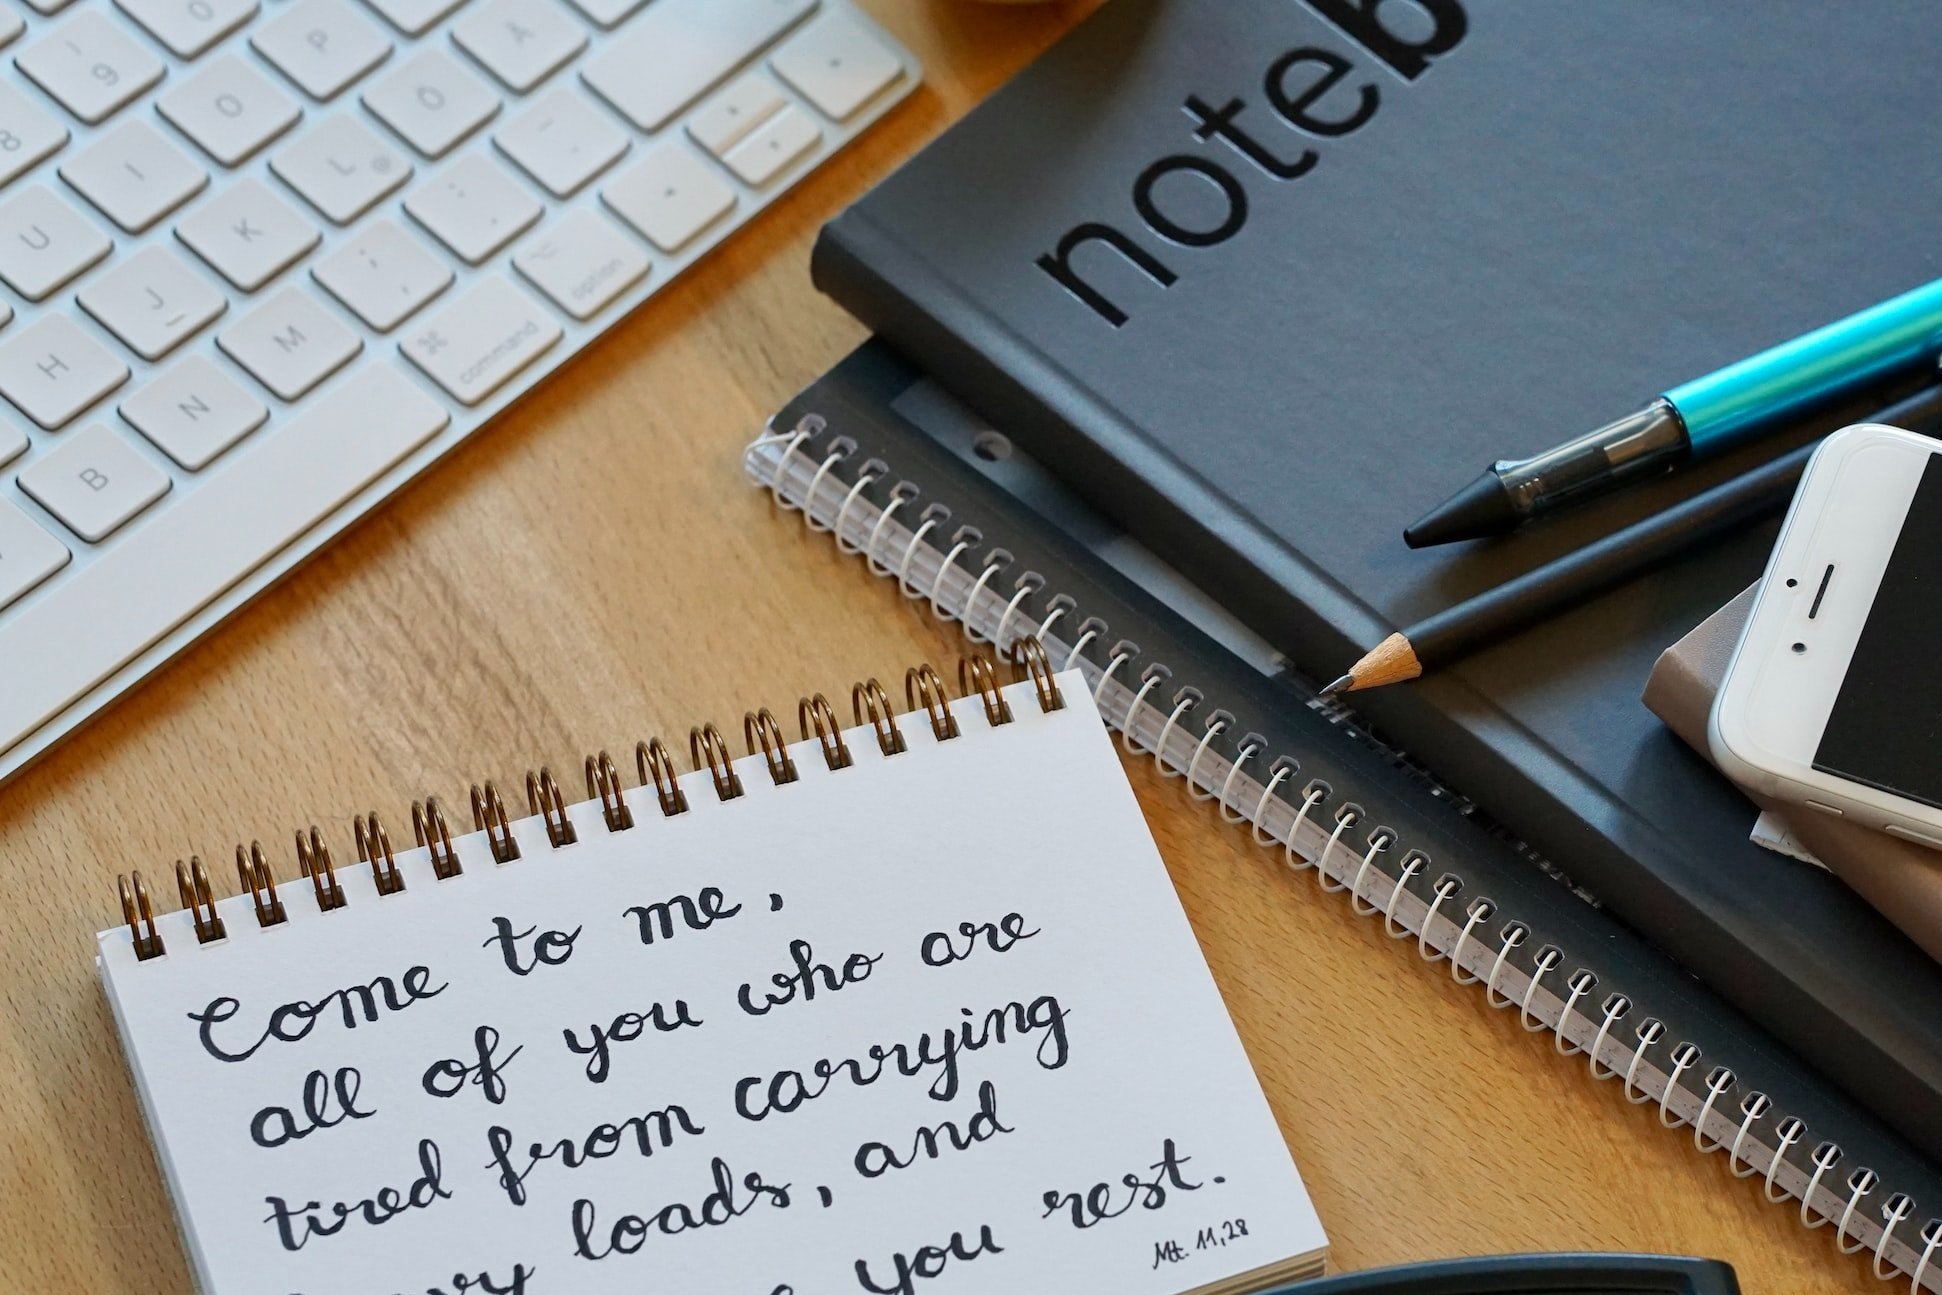 noteb
9
P
Ä
8
O
Ö
I
L @
U
K
J
option
H
M
command
N
B
Come to me,
all of you who are
tired from carrying
loads, and
you rest.
Mt. 11,28